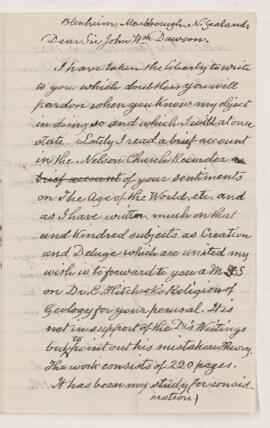 Blenheim, Marlborough, N. Zealand,
Dear Sir John Wm Dawson.
I have taken the liberty to write
to you which doubtless you will
pardon when you know my object
in doing so and which I will at once
state. Lately I read a brief account
in the Nelson Church Recorder a
brief account of your sentiments
on The Age of the World, etc. and
as I have written much on that
and kindred subjects as Creation
and Deluge which are united my
wish is to forward to you a M.S.S
on Dr. E. Hitchcok's Religion of
Geology for your perusal. It is
not in support of the Drs Writings
but to point out his mistaken theory.
The work consists of 220 pages.
It has been my study for consid-
eration)